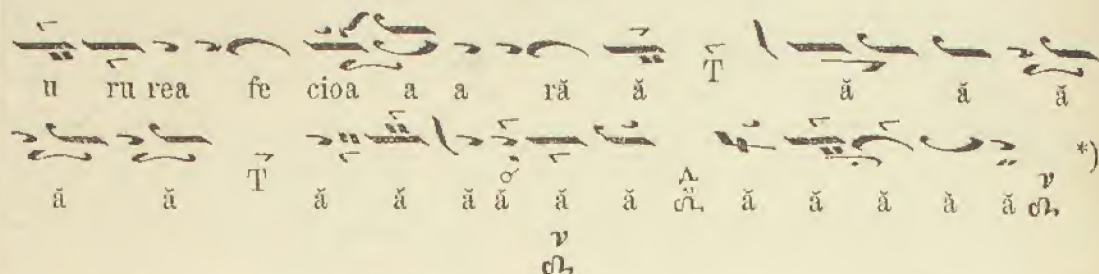 u ru rea fe cioa a a ră ă T ă ă ă
ă ă T ă ă ă ă ă ă ă ă ă ă ă *)